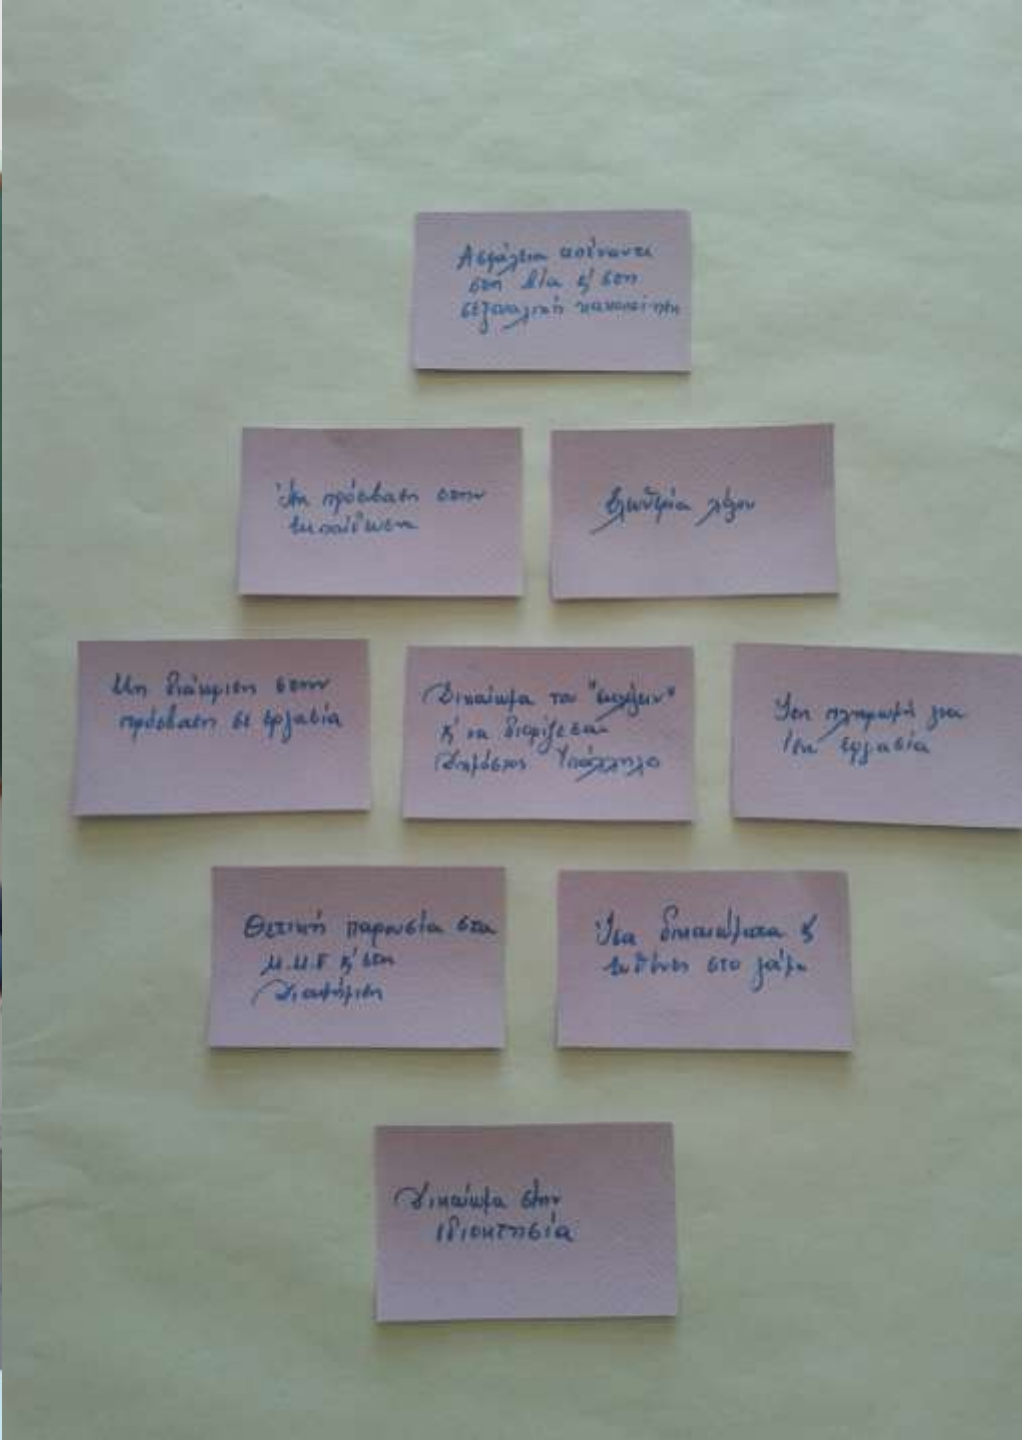 Ασφάλεια απέναντι
στη βία κ' στη
σεξουαλική κακοποίηση
Ίση πρόσβαση στην
εκπαίδευση
Ελευθερία λόγου
Μη διάκριση στην
πρόσβαση σε εργασία
Δικαίωμα του "εκλέγειν"
κ' να διορίζεσαι
Δημόσιος Υπάλληλο
Ίση πληρωμή για
ίση εργασία
Θετική παρουσία στα
Μ.Μ.Ε κ' στη
Διαφήμιση
Ίσα δικαιώματα κ'
ευθύνες στο γάμο
Δικαίωμα στην
ιδιοκτησία